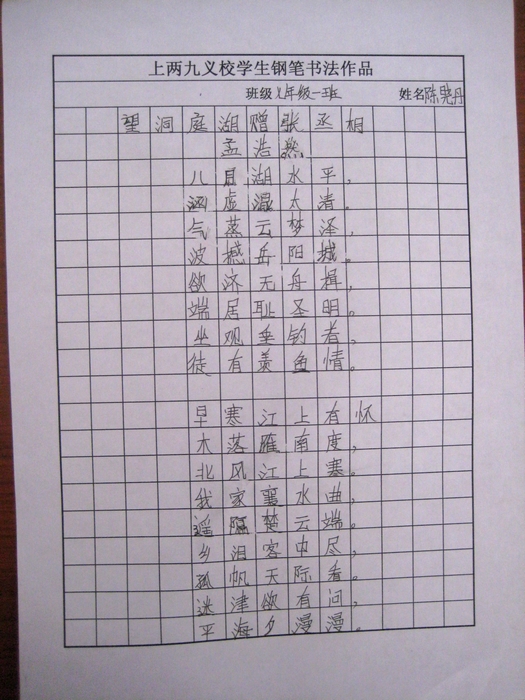 上两九义校学生钢笔书法作品
班级七年级一班 姓名陈晓丹
望洞庭湖赠张丞相
孟浩然
八月湖水平，
涵虚混太清。
气蒸云梦泽，
波撼岳阳城。
欲济无舟楫，
端居耻圣明。
坐观垂钓者，
徒有羡鱼情。
早寒江上有怀
木落雁南度，
北风江上寒。
我家襄水曲，
遥隔楚云端。
乡泪客中尽，
孤帆天际看。
迷津欲有问，
平海夕漫漫。